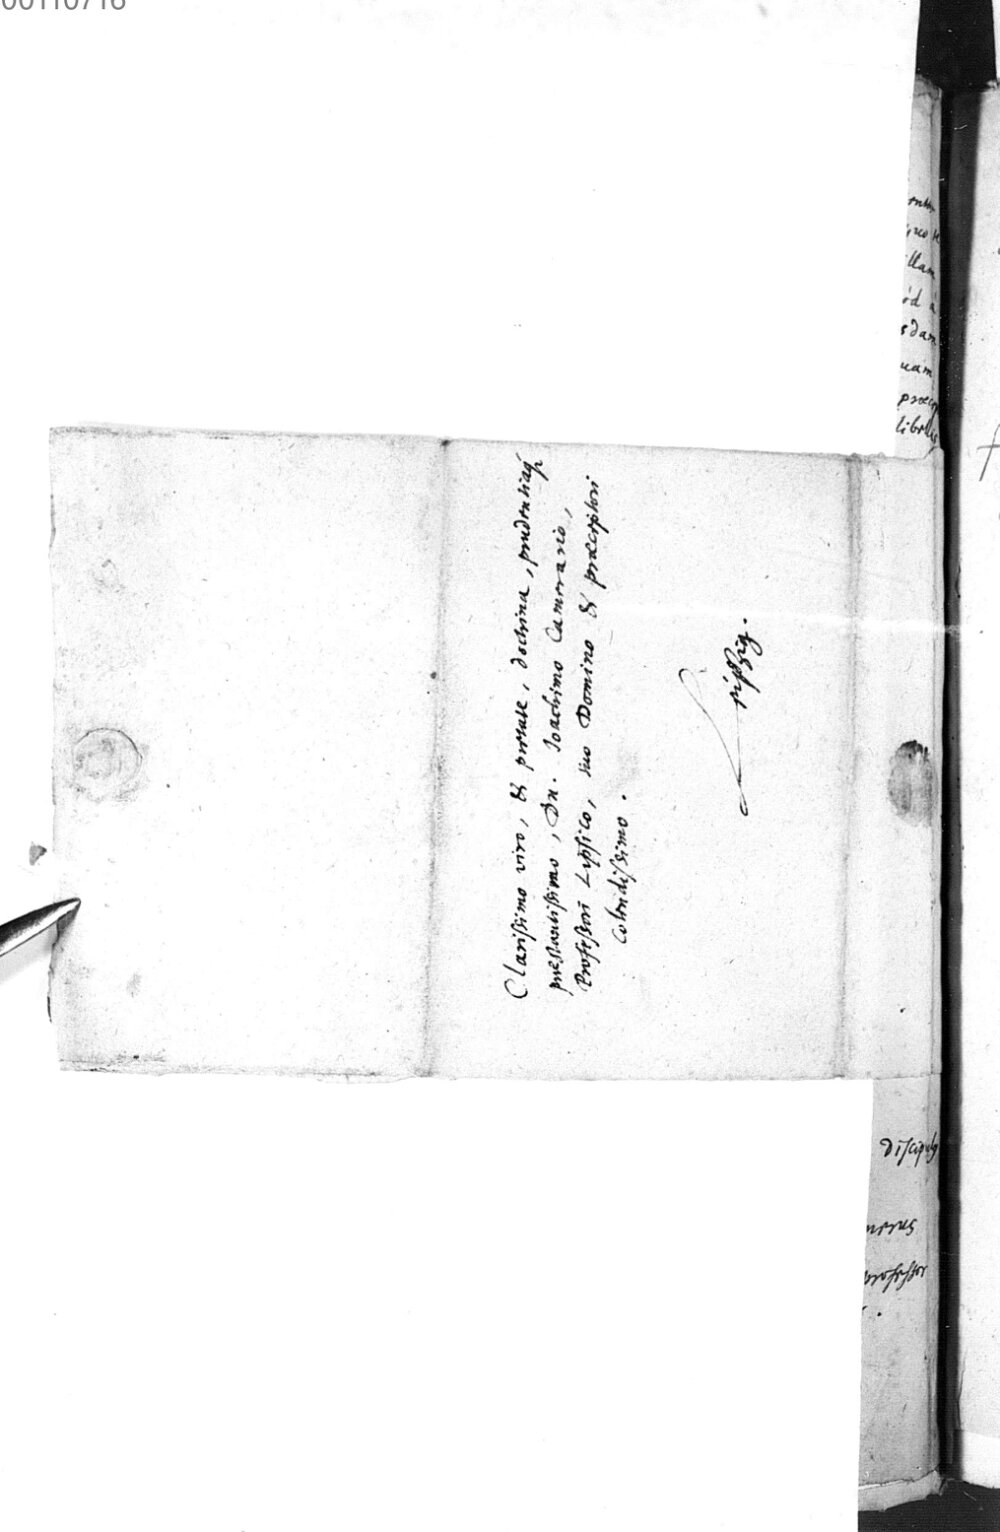 00110716
Clarissimo viro, & pietate, doctrina, prudentiaq3
præstantissimo, Dn. Ioachimo Camerario,
Professori Lipsico, suo Domino & præceptori
Colendissimo.
Leipßig.
llam
ód á
sdam
uam
præcep
libellis
Discipulus
professor